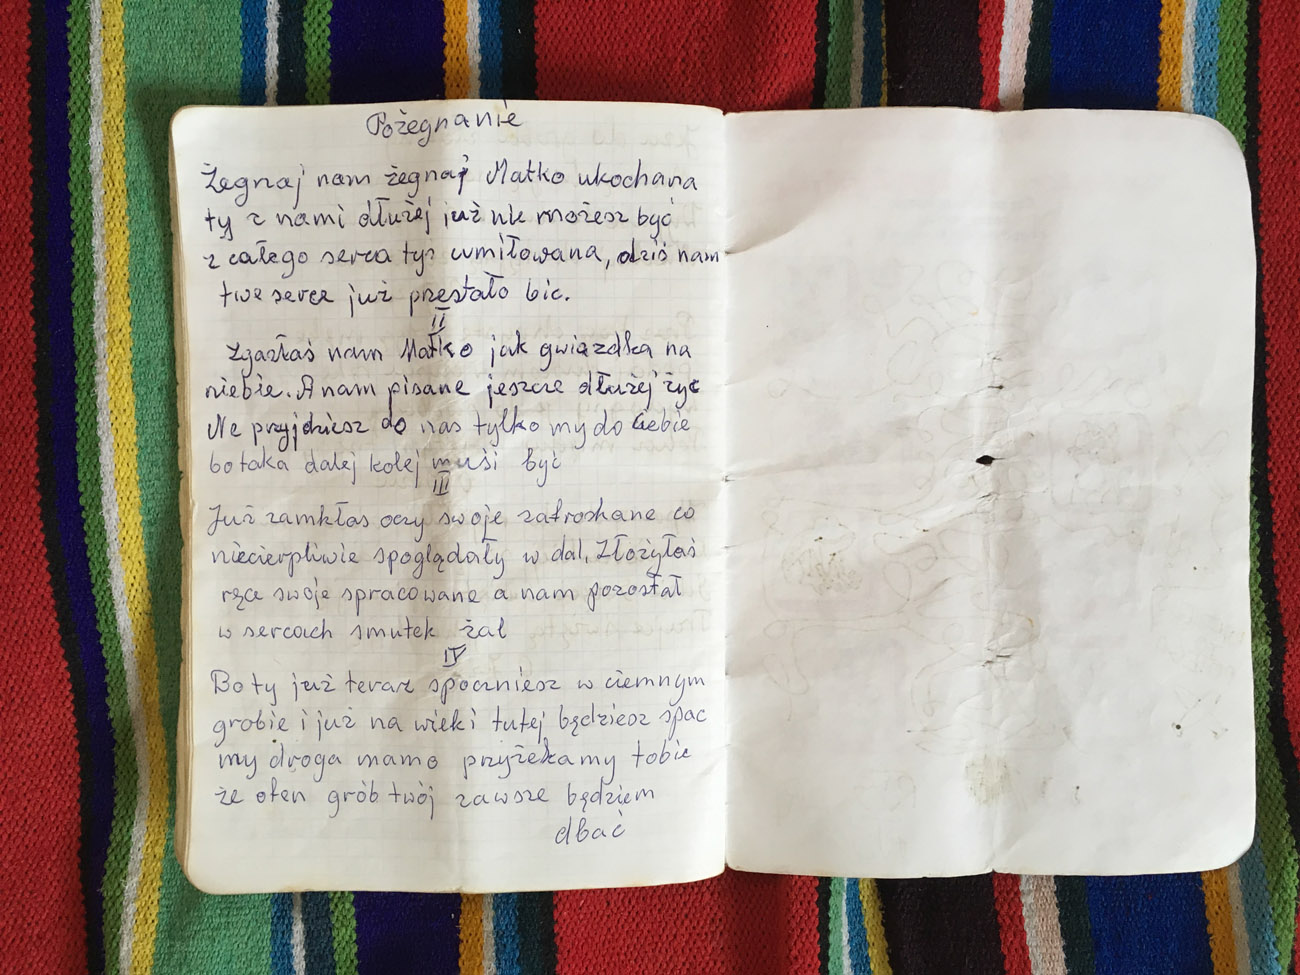 Pożegnanie
Żegnaj nam żegnaj Matko ukochana
ty z nami dłużej już nie możesz być
z całego serca tyś umiłowana, dziś nam
twe serce już przestało bic.
II
Zgasłaś nam Matko jak gwiazdka na
niebie. A nam pisane jeszcze dłużej żyć
Ne przyjdziesz do nas tylko my do Ciebie
bo taka dalej kolej musi być
III
Już zamkłas oczy swoje zatroskane co
niecierpliwie spoglądały w dal, Złożyłaś
ręce swoje spracowane a nam pozostał
w sercach smutek żal
IV
Bo ty już teraz spoczniesz w ciemnym
grobie i już na wieki tutej będziesz spac
my droga mamo przyżekamy tobie
że oten grób twój zawsze będziem
dbać